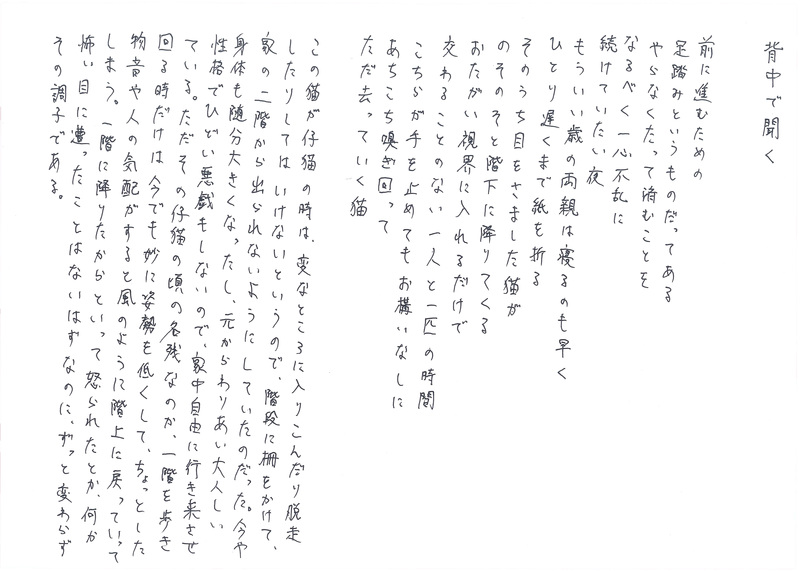 背中で聞く
前に進むための
足踏みというものだってある
やらなくたって済むことを
なるべく一心不乱に
続けていたい夜
もういい歳の両親は寝るのも早く
ひとり遅くまで紙を折る
そのうち目をさました猫が
のそのそと階下に降りてくる
おたがい視界に入れるだけで
交わることのない一人と一匹の時間
こちらが手を止めてもお構いなしに
あちこち嗅ぎ回って
ただ去っていく猫
この猫が仔猫の時は、変なところに入りこんだり脱走
したりしてはいけないというので、階段に柵をかけて、
家の二階から出られないようにしていたのだった。今や
身体も随分大きくなったし、元からわりあい大人しい
性格でひどい悪戯もしないので、家中自由に行き来させ
ている。ただその仔猫の頃の名残なのか、一階を歩き
回る時だけは今でも妙に姿勢を低くして、ちょっとした
物音や人の気配がすると風のように階上に戻っていって
しまう。一階に降りたからといって怒られたとか、何か
怖い目に遭ったことはないはずなのに、ずっと変わらず
その調子である。